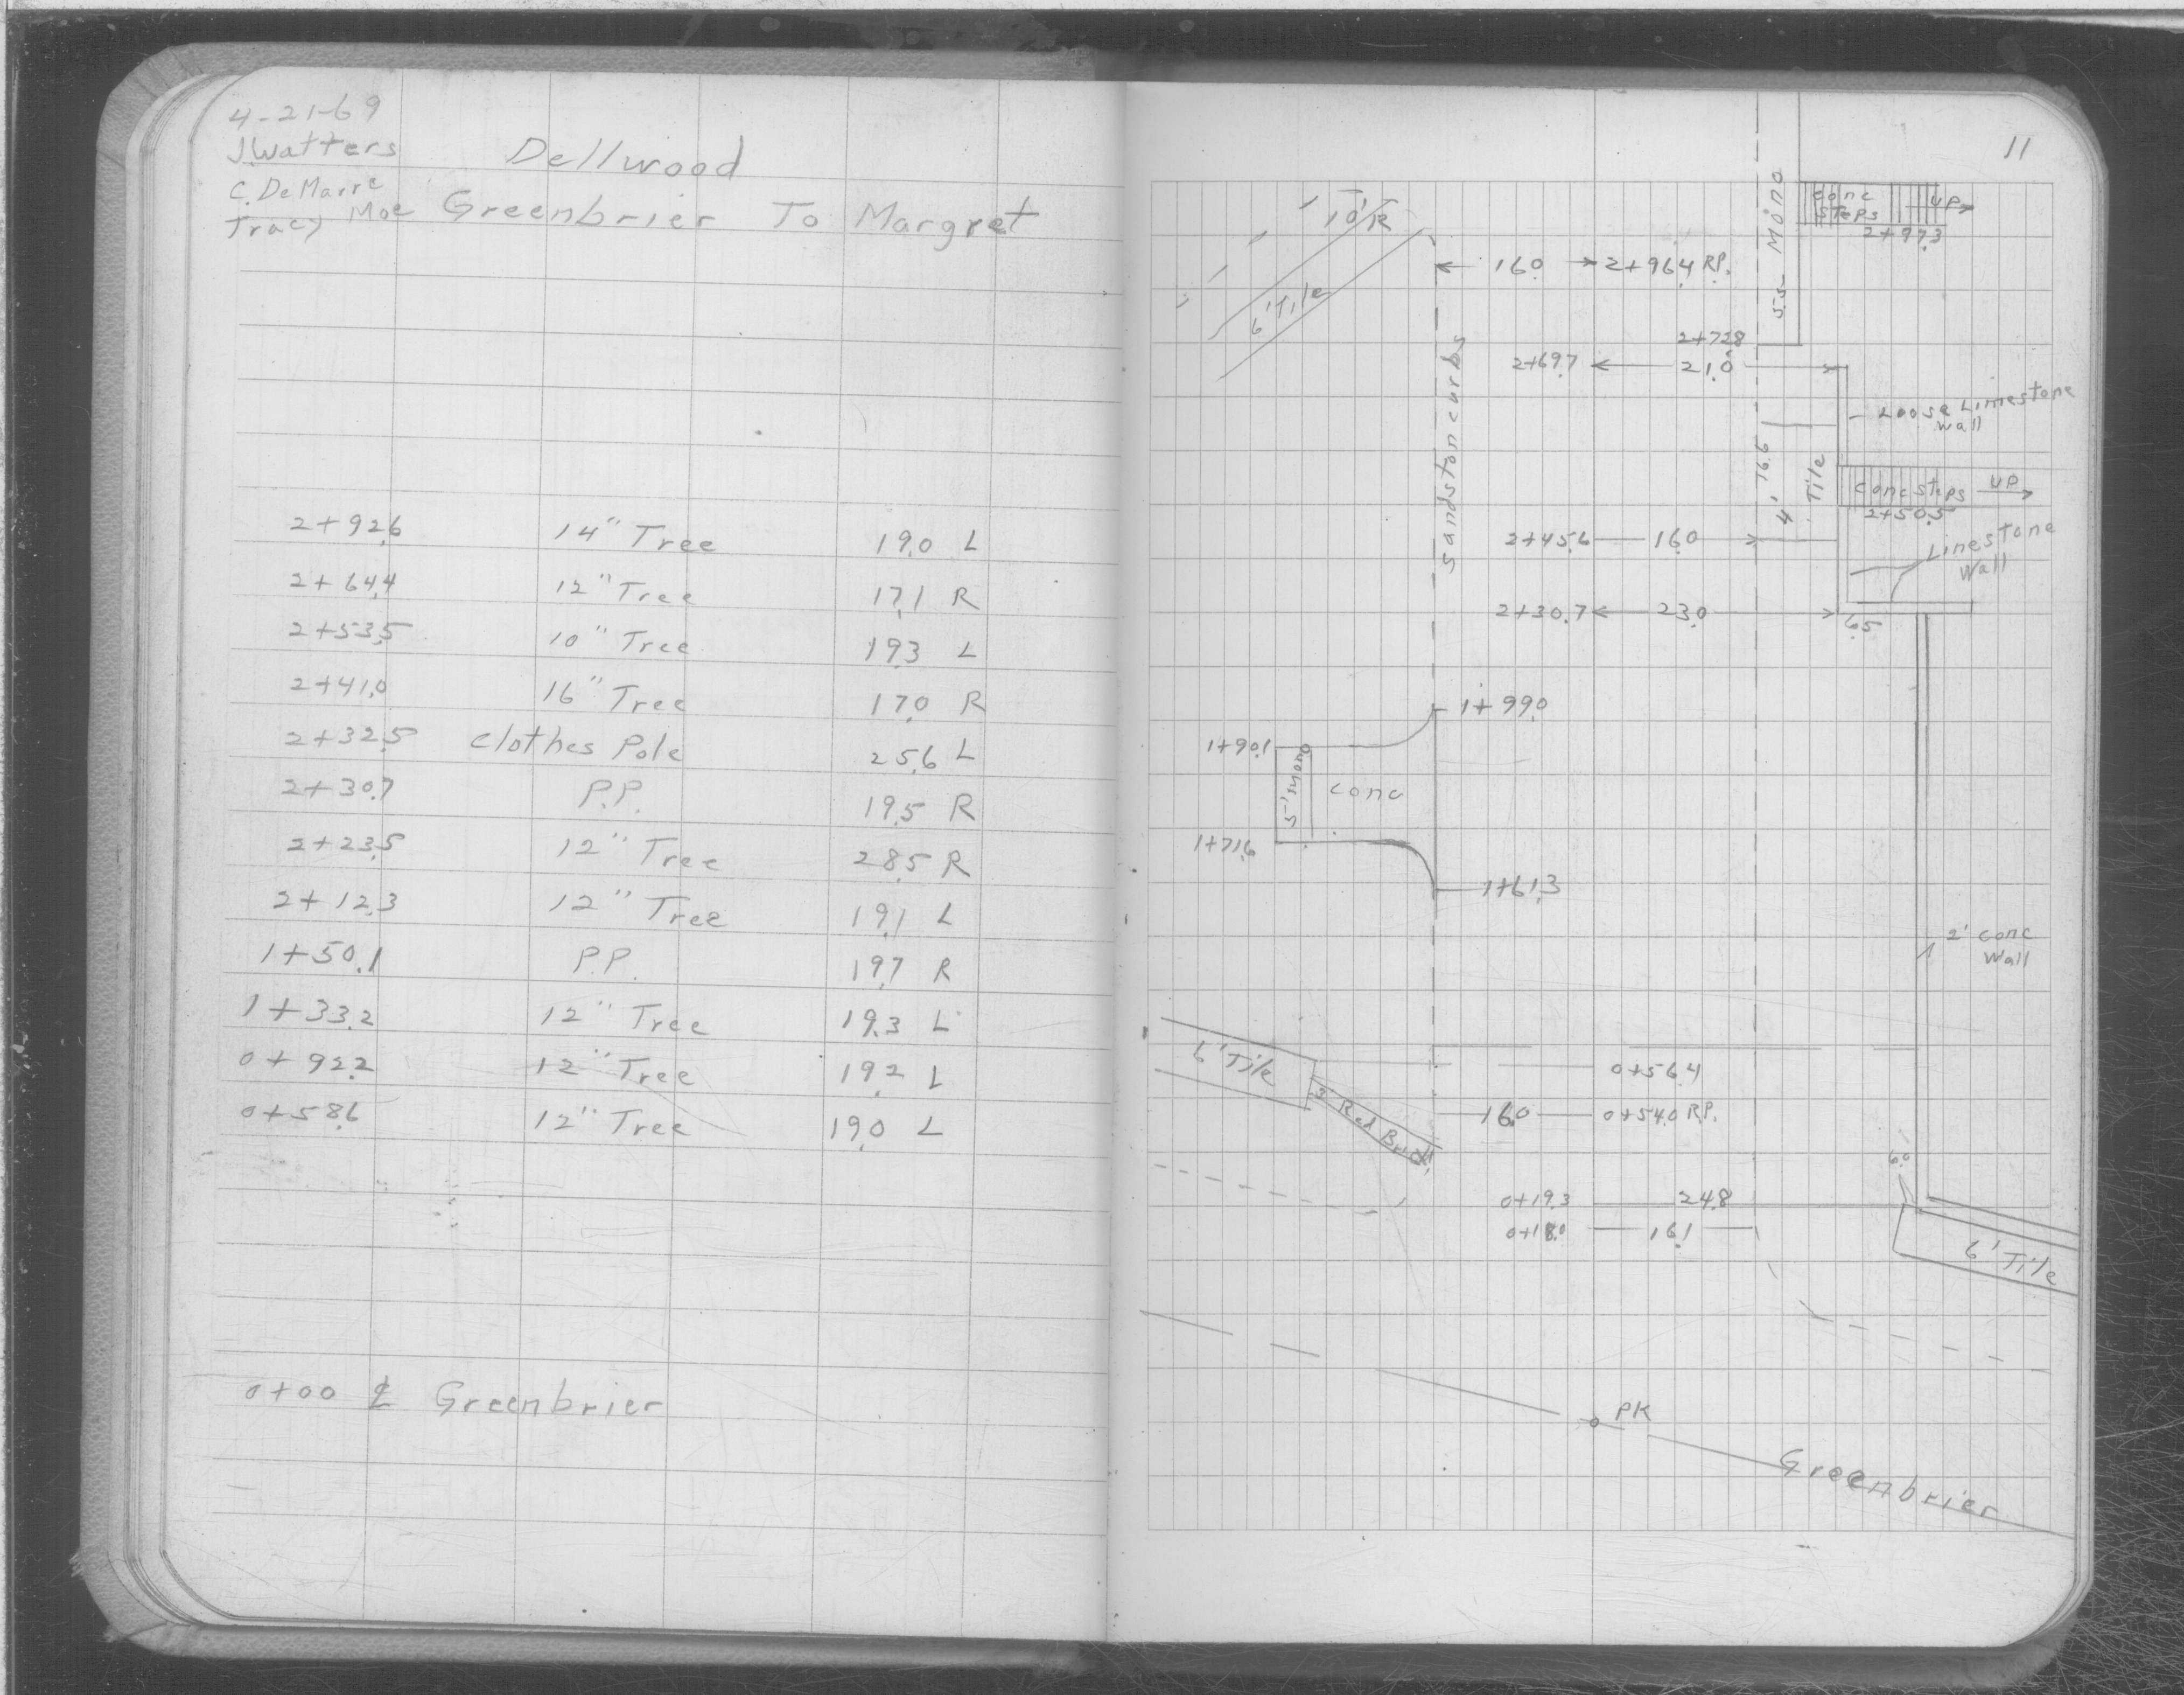 4-21-69
J.Watters
Dellwood
C. DeMarre
Tracy Moe
Greenbrier To Margret
2+92.6 14" Tree 19.0 L
2+64.4 12" Tree 17.1 R
2+53.5 10" Tree 19.3 L
2+41.0 16" Tree 17.0 R
2+32.5 clothes Pole 25.6 L
2+30.7 P.P. 19.5 R
2+23.5 12" Tree 28.5 R
2+12.3 12" Tree 19.1 L
1+50.1 P.P. 19.7 R
1+33.2 12" Tree 19.3 L
0+92.2 12" Tree 19.2 L
0+58.6 12" Tree 19.0 L
0+00 ℄ Greenbrier
11
10'R
6' Tile
16.0 2+96.4 R.P.
5.5 Mono
conc steps UP
2+97.3
2+72.8
2+69.7 21.0
Sandstone curbs
Loose Limestone
Wall
16.6
4' Tile
conc steps UP
2+50.5
2+45.6 16.0
Limestone
Wall
2+30.7 23.0
6.5
1+99.0
1+90.1
5' mono
conc
1+71.6
1+61.3
2' conc
Wall
6' Tile
3' Red Brick
0+56.4
16.0 0+54.0 R.P.
6.0
0+19.3 24.8
0+18.0 16.1
6' Tile
PK
Greenbrier